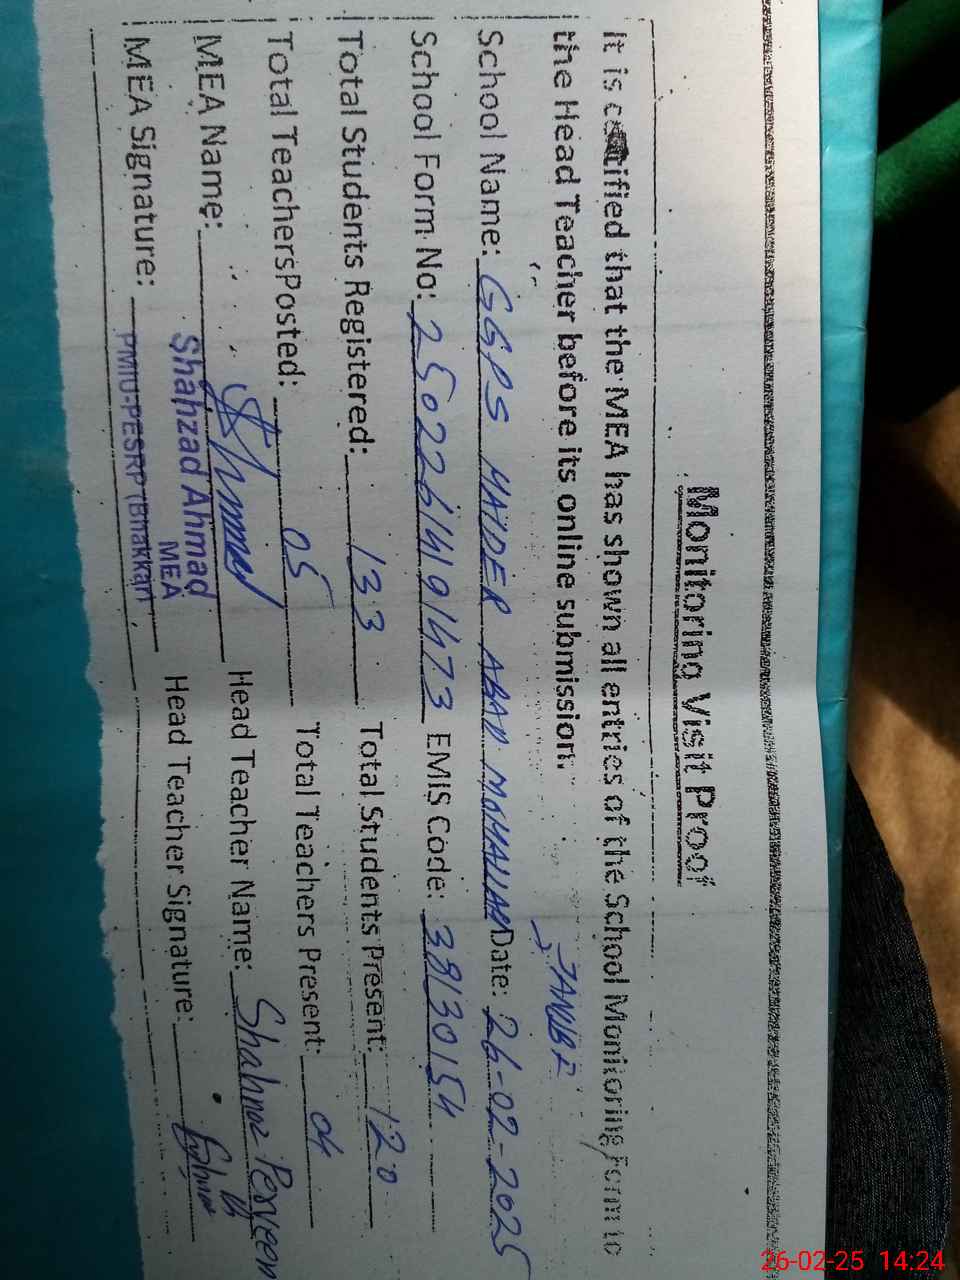 Monitoring Visit Proof
It is certified that the MEA has shown all entries of the School Monitoring Form to
the Head Teacher before its online submission.
School Name: GGPS HAIDER ABAD Date: 26-02-2025
School Form No: 25022614191473 EMIS Code: 38130154
Total Students Registered: 133 Total Students Present: 120
Total Teachers Posted: 05 Total Teachers Present: 04
MEA Name: Head Teacher Name: Shahnaz Perveen
Shahzad Ahmad
MEA
MEA Signature: Head Teacher Signature:
PMIU-PESRP (Bhakkar)
26-02-25 14:24